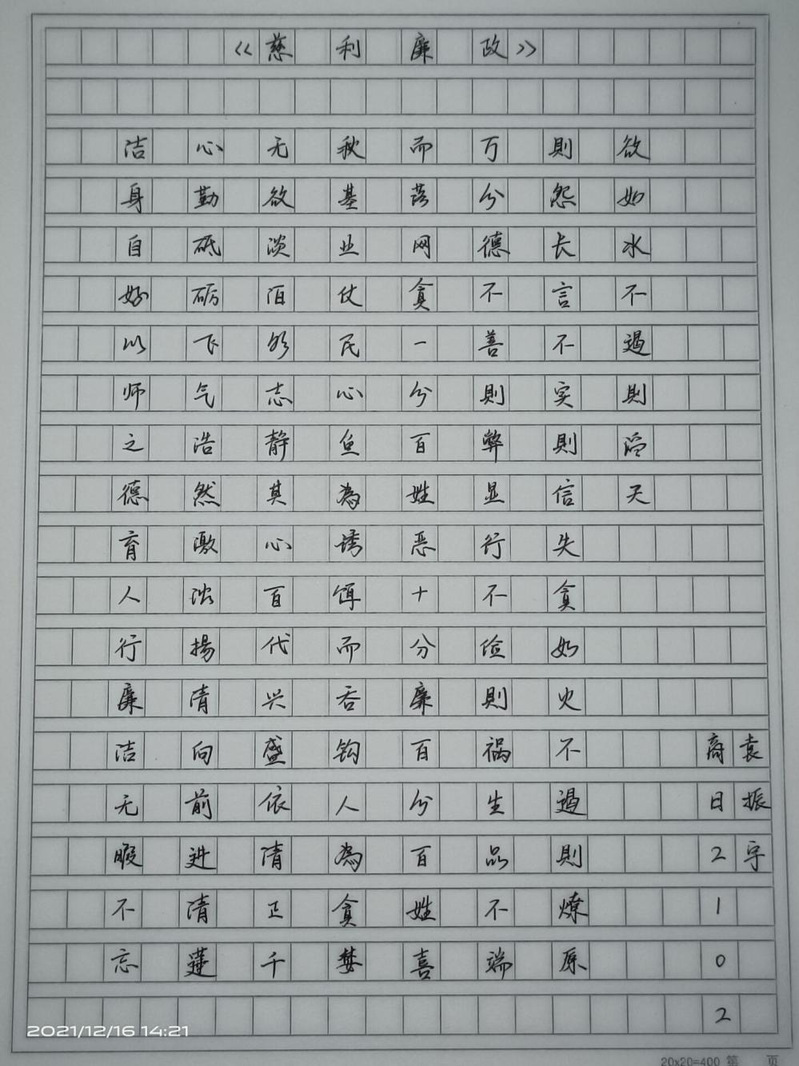 《慈利廉政》
洁身自好以师之德育人行廉洁无暇不忘
心勤砥砺飞气浩然激浊揚清向前进清蓮
无欲淡泊明志静其心百代兴盛依清正千
秋基业仗民心鱼為诱饵而吞钩人為貪婪
而落网貪一分百姓恶十分廉百分百姓喜
万分德不善則弊显行不俭則祸生品不端
則怨长言不实則信失貪如火不遏則燎原
欲如水不遏則滔天
商日2102
袁振宇
2021/12/16 14:21
20x20=400 第 页